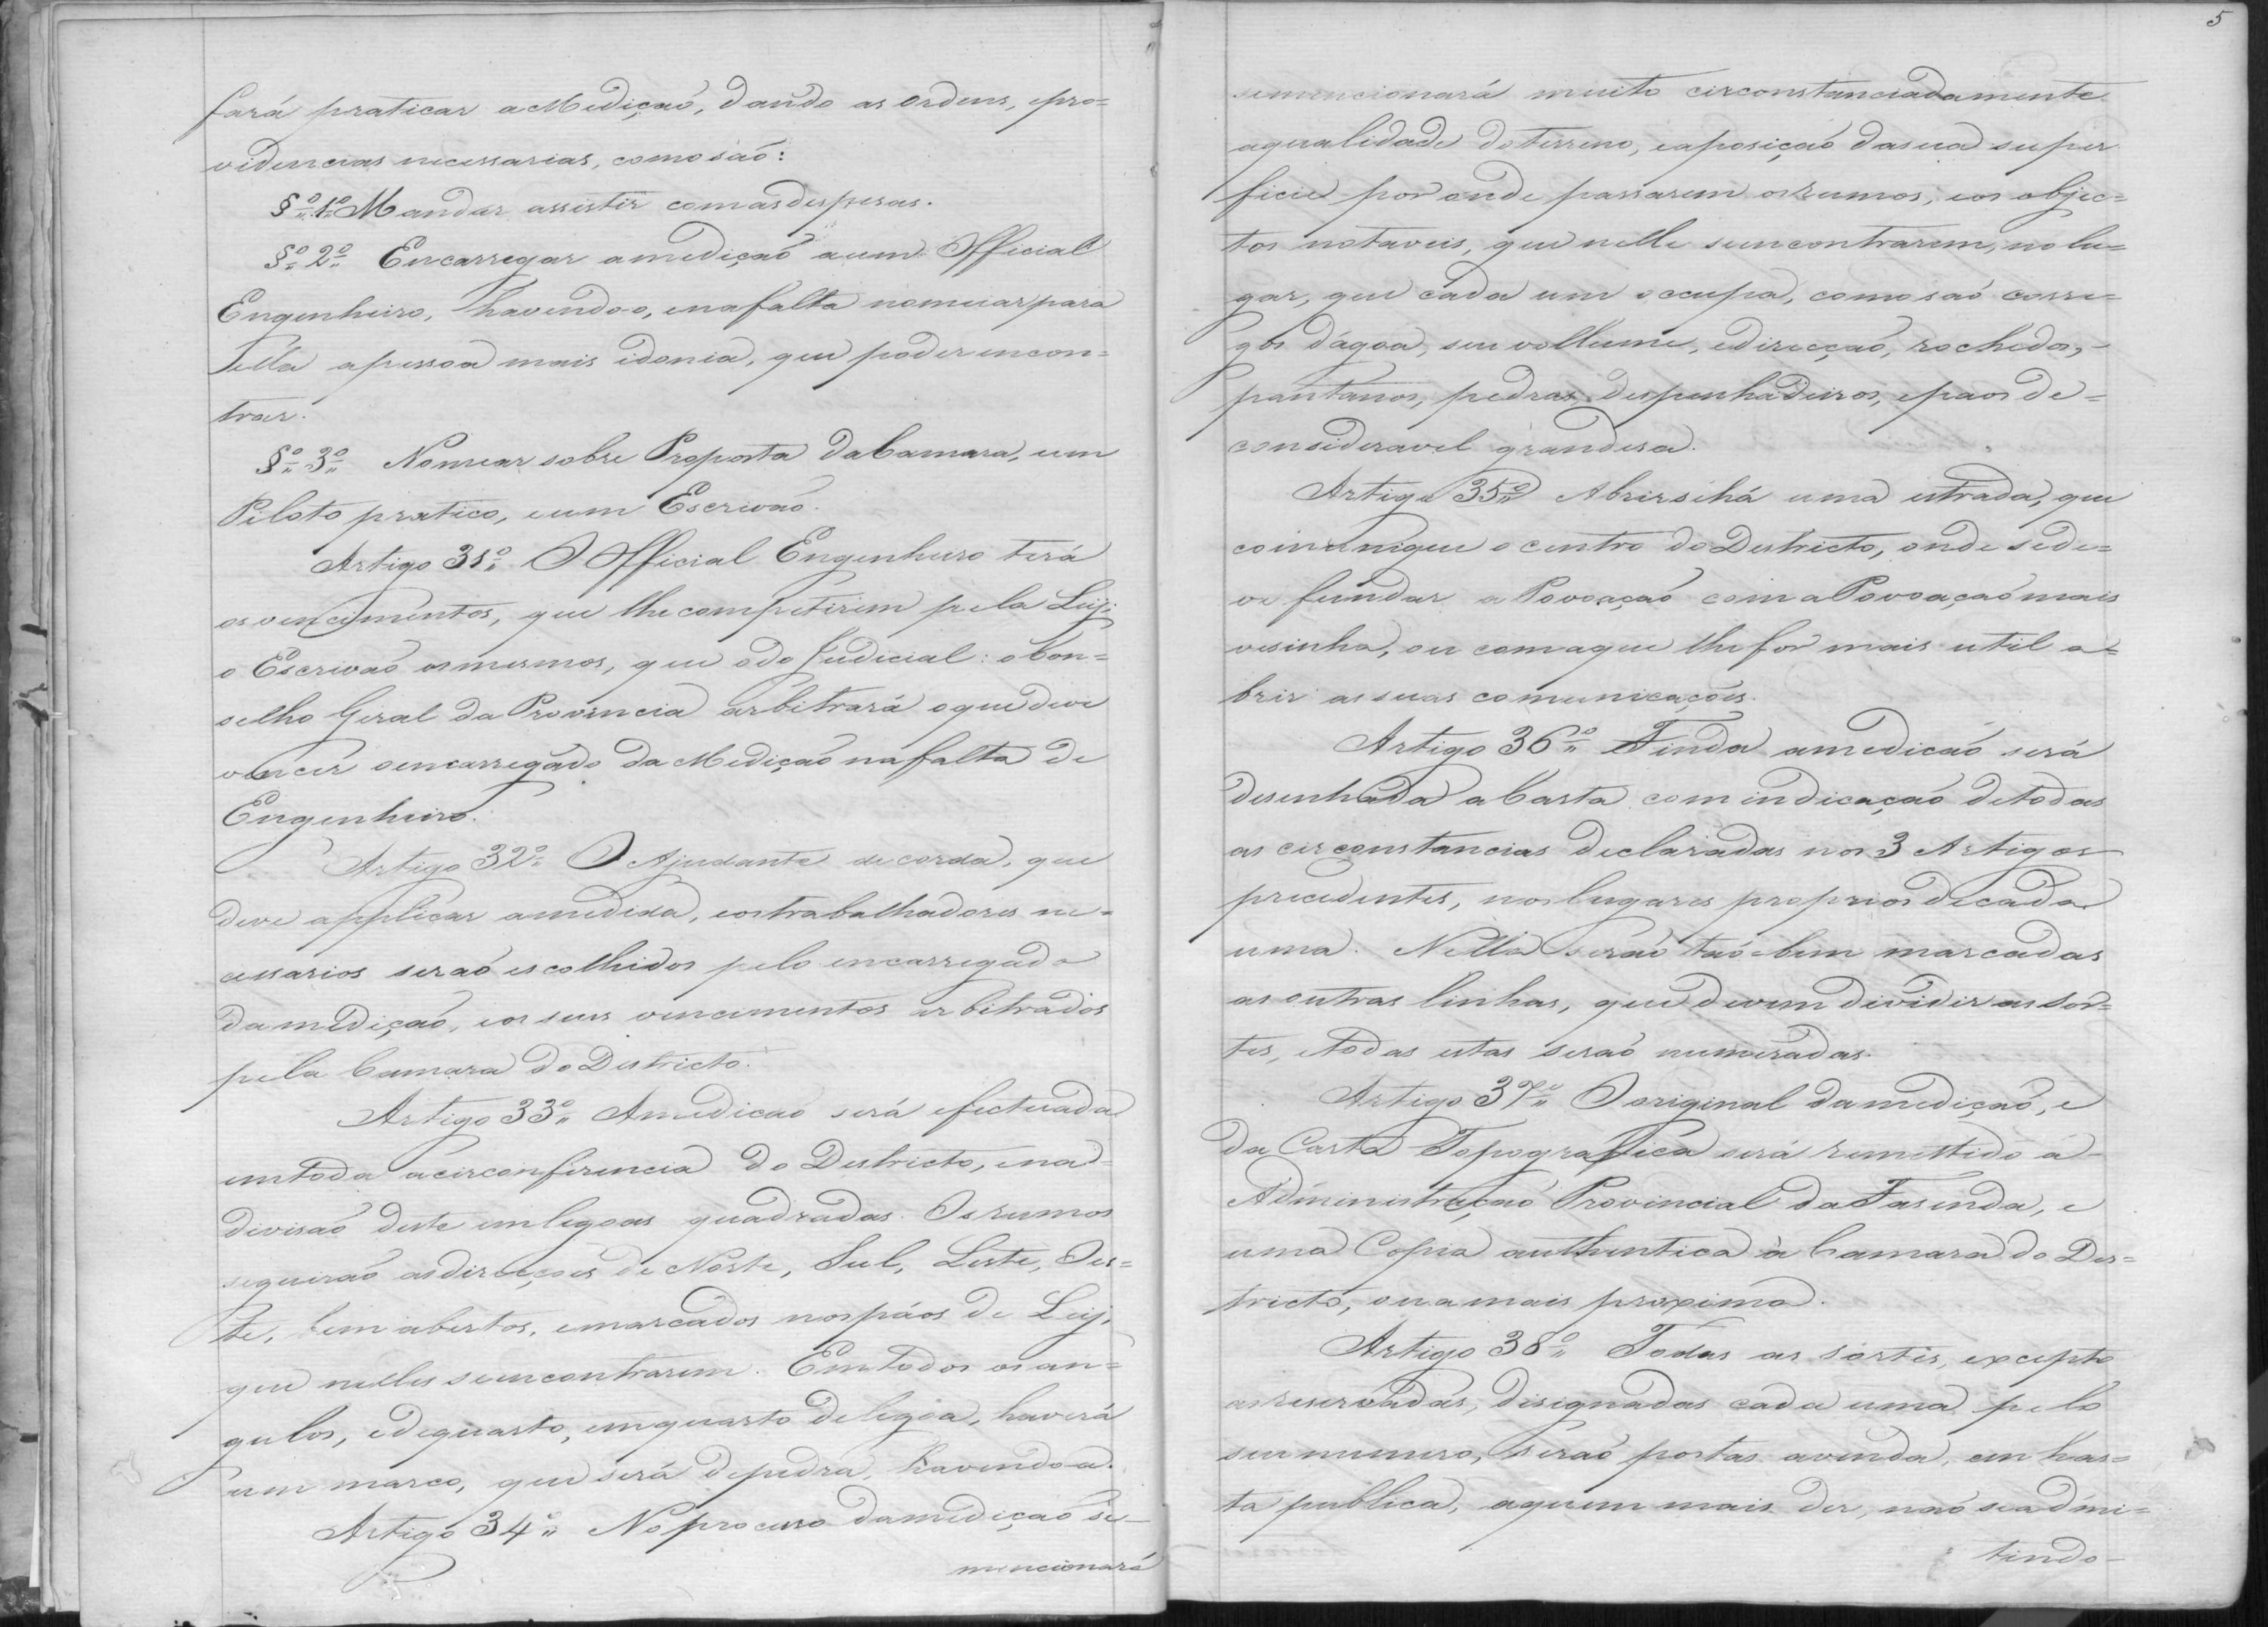 fará praticar a Medição, dando as ordens, e pro=
videncias necessarias, como são:
§º 1º Mandar assistir com as despesas.
§º 2º Encarregar a medição a um Official
Engenheiro, havendo-o, e na falta nomear para
ella a pessoa mais idonia, que poder encon=
trar.
§º 3º Nomear sobre Proposta da Camara, um
Piloto pratico, e um Escrivão.
Artigo 31º O Official Engenheiro terá
os vencimentos, que lhe competirem pela Ley;
o Escrivão os mesmos, que o do Judicial: o Con=
selho Geral da Provincia arbitrará o que deve
vencer o encarregado da Medição na falta de
Engenheiro.
Artigo 32º O Ajudante de corda, que
deve applicar a medida, e os trabalhadores ne=
cessarios serão escolhidos pelo encarregado
da medição, e os seus vencimentos arbitrados
pela Camara do Districto.
Artigo 33º A medicao será efectuada
em toda a circonferencia do Districto, e na
divisão deste em legoas quadradas. Os rumos
seguirão as direcções de Norte, Sul, Leste, Oes=
te, bem abertos, e marcados nos páos de Ley,
que nelles se encontrarem. Em todos os an=
gulos, e de quarto, em quarto de legoa, haverá
um marco, que será de pedra, havendo-a.
Artigo 34º No processo da medição se-
mencionará
5
se mencionará muito circonstanciadamente
a qualidade do terreno, e a posição da sua super
ficie por onde passarem os rumos; e os objec=
tos notaveis, que nelle se encontrarem, no lu=
gar, que cada um occupa, como são corre=
gos d'ágoa, seu vollume, e direcção, rochedos,
pantanos, pedras, despenhadeiros, e paos de=
consideravel grandesa.
Artigo 35º Abrirsehá uma estrada, que
comunique o centro do Districto, onde se de=
ve fundar a Povoação com a Povoação mais
vesinha, ou com a que lhe for mais util a=
brir as suas comunicações.
Artigo 36º Finda a medicão será
desenhada a Carta com indicação de todas
as circonstancias declaradas nos 3 Artigos
precedentes, nos lugares proprios de cada
uma. Nella serão tãobem marcadas
as outras linhas, que devem dividir as sor=
tes, e todas estas serão numeradas.
Artigo 37º O original da medição, e
da Carta Topografica será remettido á
Administração Provincial da Fasenda, e
uma Copia authentica à Camara do Des=
tricto, ou a mais proxima.
Artigo 38º Todas as sortes, excepto
as reservadas, designadas cada uma pelo
seu numero, serão postas a venda, em has=
ta publica, a quem mais der, não se admi=
tindo-